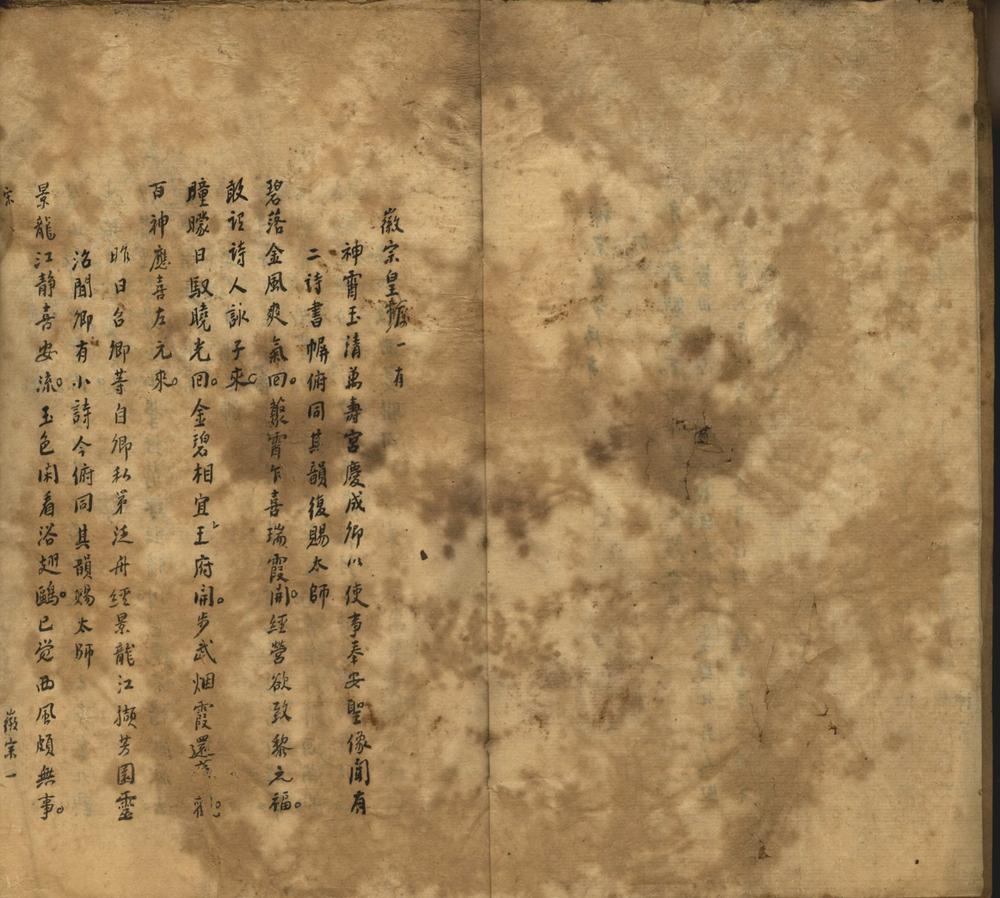 徽宗皇帝一有
神霄玉清萬壽宮慶成卿以使事奉安聖像聞有
二詩書幈俯同其韻復賜太師
碧落金風爽氣回叢霄乍喜瑞霞開經營欲致黎元福
敢詔詩人詠子來
瞳曚日馭曉光回金碧相宜王府開步武烟霞還
百神應喜左元來
昨日召卿等自卿私第泛舟經景龍江擷芳園靈
沼聞卿有小詩今俯同其韻賜太師
景龍江靜喜安流玉色閑看浴翅鷗已觉西風頗無事
徽宗一